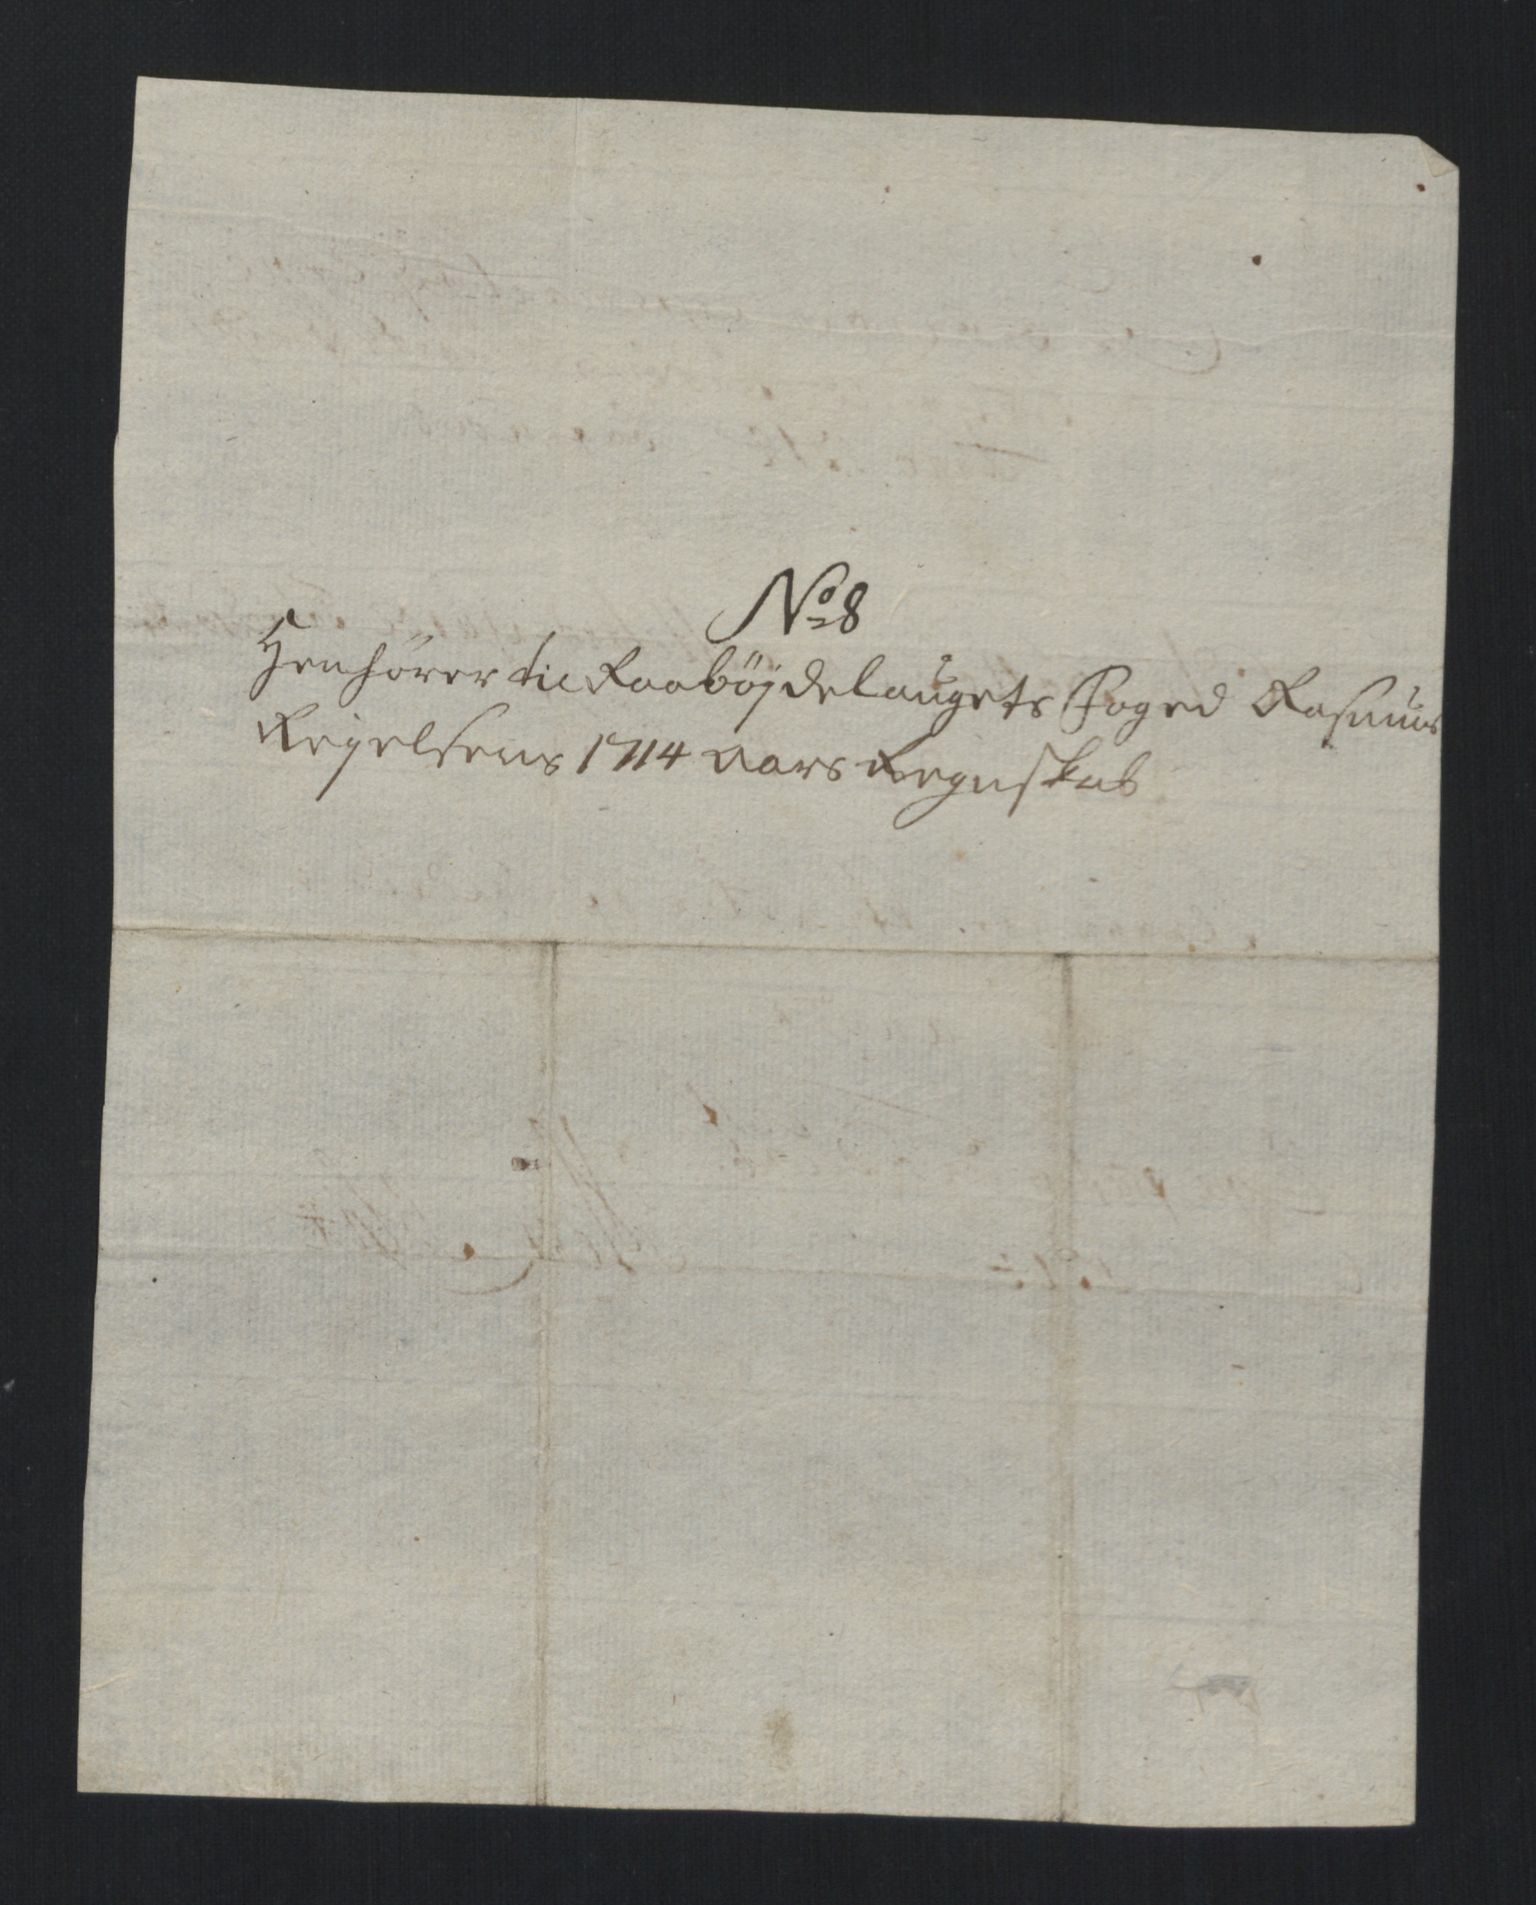 No 8
Henhörer til Raaböjdelaugets Foged Rasmus
Kejelsens 1714 Aars Regnskab